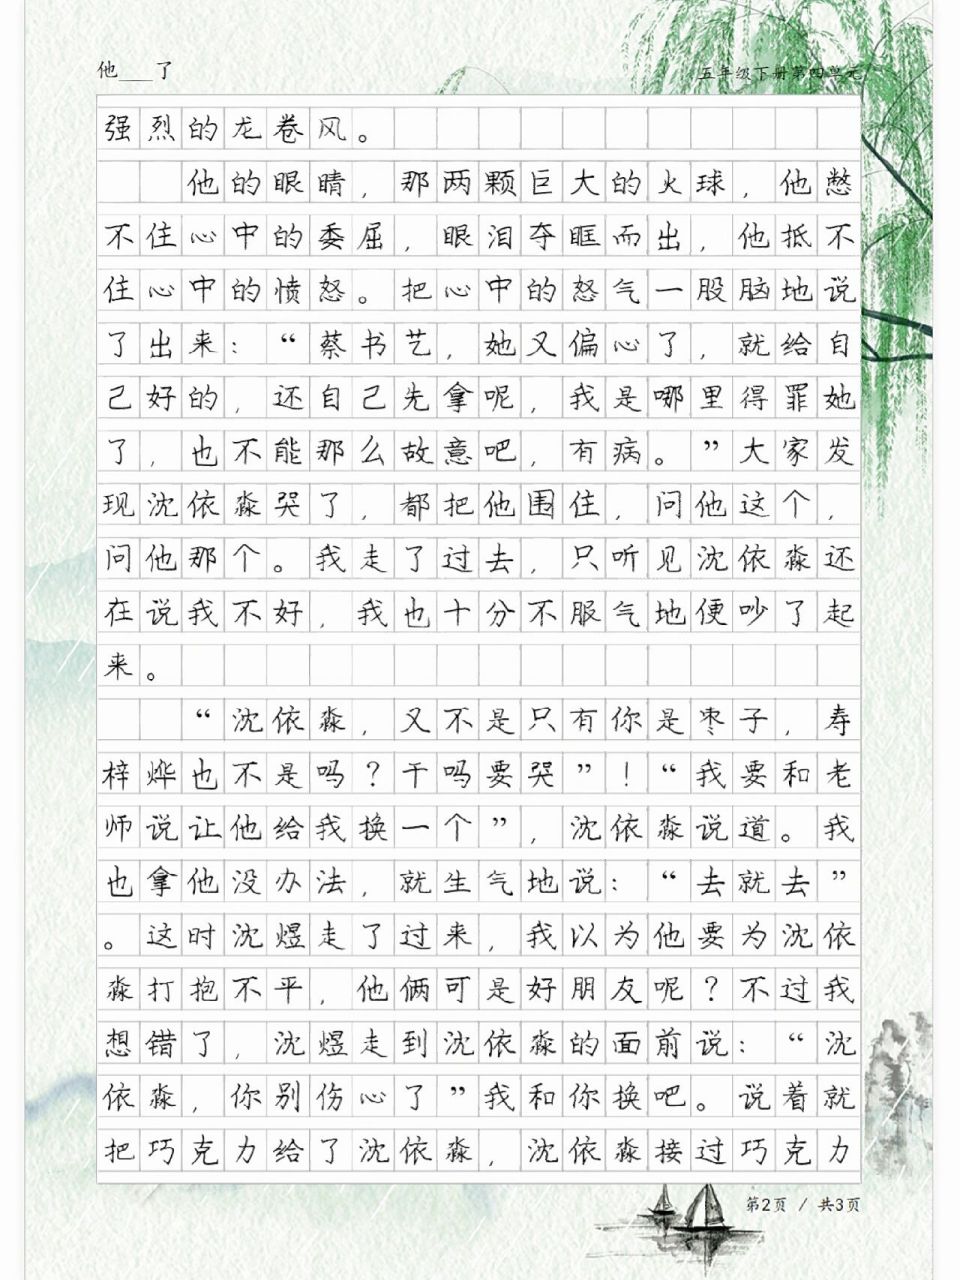 他___了
五年级下册第四单元
强烈的龙卷风。
他的眼睛，那两颗巨大的火球，他憋
不住心中的委屈，眼泪夺眶而出，他抵不
住心中的愤怒。把心中的怒气一股脑地说
了出来：“蔡书艺，她又偏心了，就给自
己好的，还自己先拿呢，我是哪里得罪她
了，也不能那么故意吧，有病。”大家发
现沈依淼哭了，都把他围住，问他这个，
问他那个。我走了过去，只听见沈依淼还
在说我不好，我也十分不服气地便吵了起
来。
“沈依淼，又不是只有你是枣子，寿
梓烨也不是吗？干吗要哭”！“我要和老
师说让他给我换一个”，沈依淼说道。我
也拿他没办法，就生气地说：“去就去”
。这时沈煜走了过来，我以为他要为沈依
淼打抱不平，他俩可是好朋友呢？不过我
想错了，沈煜走到沈依淼的面前说：“沈
依淼，你别伤心了”我和你换吧。说着就
把巧克力给了沈依淼，沈依淼接过巧克力
第2页 / 共3页